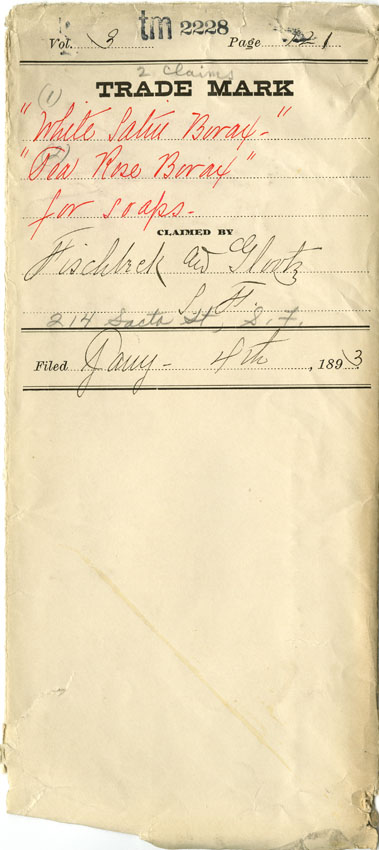 tm 2228
Vol. 3 Page 1
2 Claims
TRADE MARK
(1)
"White Satin Borax-"
"Tea Rose Borax"
for soaps-
CLAIMED BY
Fischbeck and Glootz
S. F.
214 Sacto St., S. F.
Filed Jany- 4th, 1893